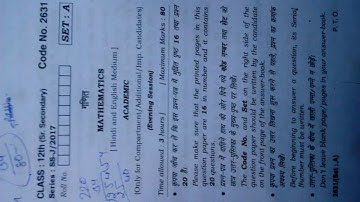 CLASS : 12th (Sr. Secondary) Code No. 2631
Series : SS-J/2017
Roll No. SET : A
गणित
MATHEMATICS
[ Hindi and English Medium ]
ACADEMIC
(Only for Compartment/Additional/Imp. Candidates)
(Evening Session)
Time allowed : 3 hours ] [ Maximum Marks : 80
• कृपया जाँच कर लें कि इस प्रश्न-पत्र में मुद्रित पृष्ठ 16 तथा प्रश्न
20 हैं।
Please make sure that the printed pages in this
question paper are 16 in number and it contains
20 questions.
• प्रश्न-पत्र में दाहिने हाथ की ओर दिये गये कोड नम्बर तथा सेट को
छात्र उत्तर-पुस्तिका के मुख्य-पृष्ठ पर लिखें।
The Code No. and Set on the right side of the
question paper should be written by the candidate
on the front page of the answer-book.
• कृपया प्रश्न का उत्तर लिखना शुरू करने से पहले, प्रश्न का क्रमांक
अवश्य लिखें।
Before beginning to answer a question, its Serial
Number must be written.
• उत्तर-पुस्तिका के बीच में खाली पन्ना/पन्ने न छोड़ें।
Don't leave blank page/pages in your answer-book.
2631/(Set : A) P. T. O.